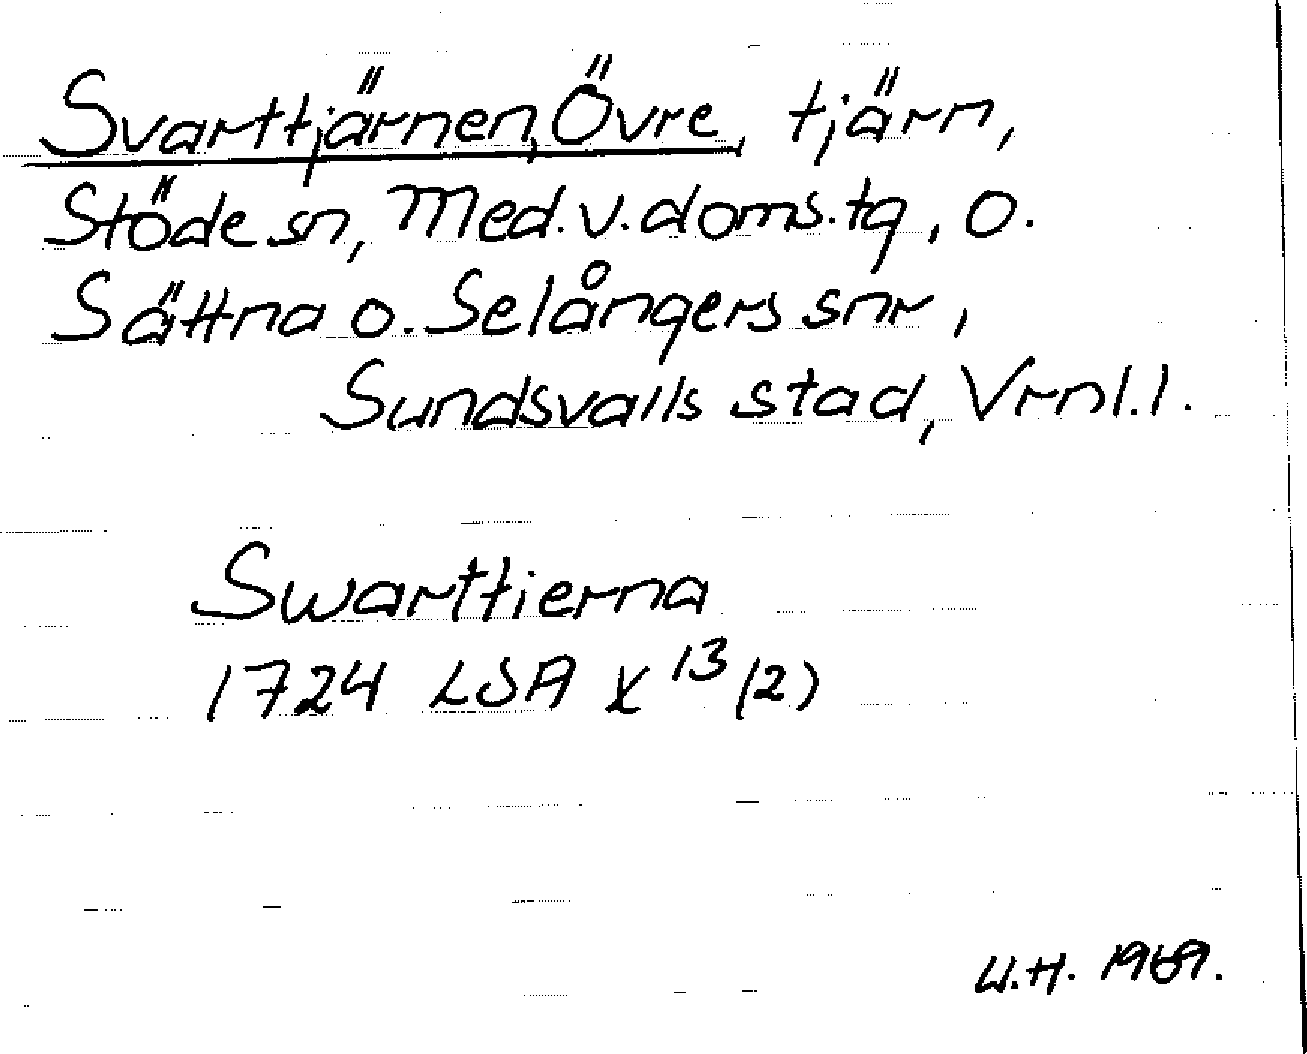 Svarttjärnen, Övre, tjärn,
Stöde sn, Med. v. doms. tg, o.
Sättna o. Selångers snr,
Sundsvalls stad, Vrnl. l.
Swarttierna
1724 LSA X 13 (2)
U.H. 1969.